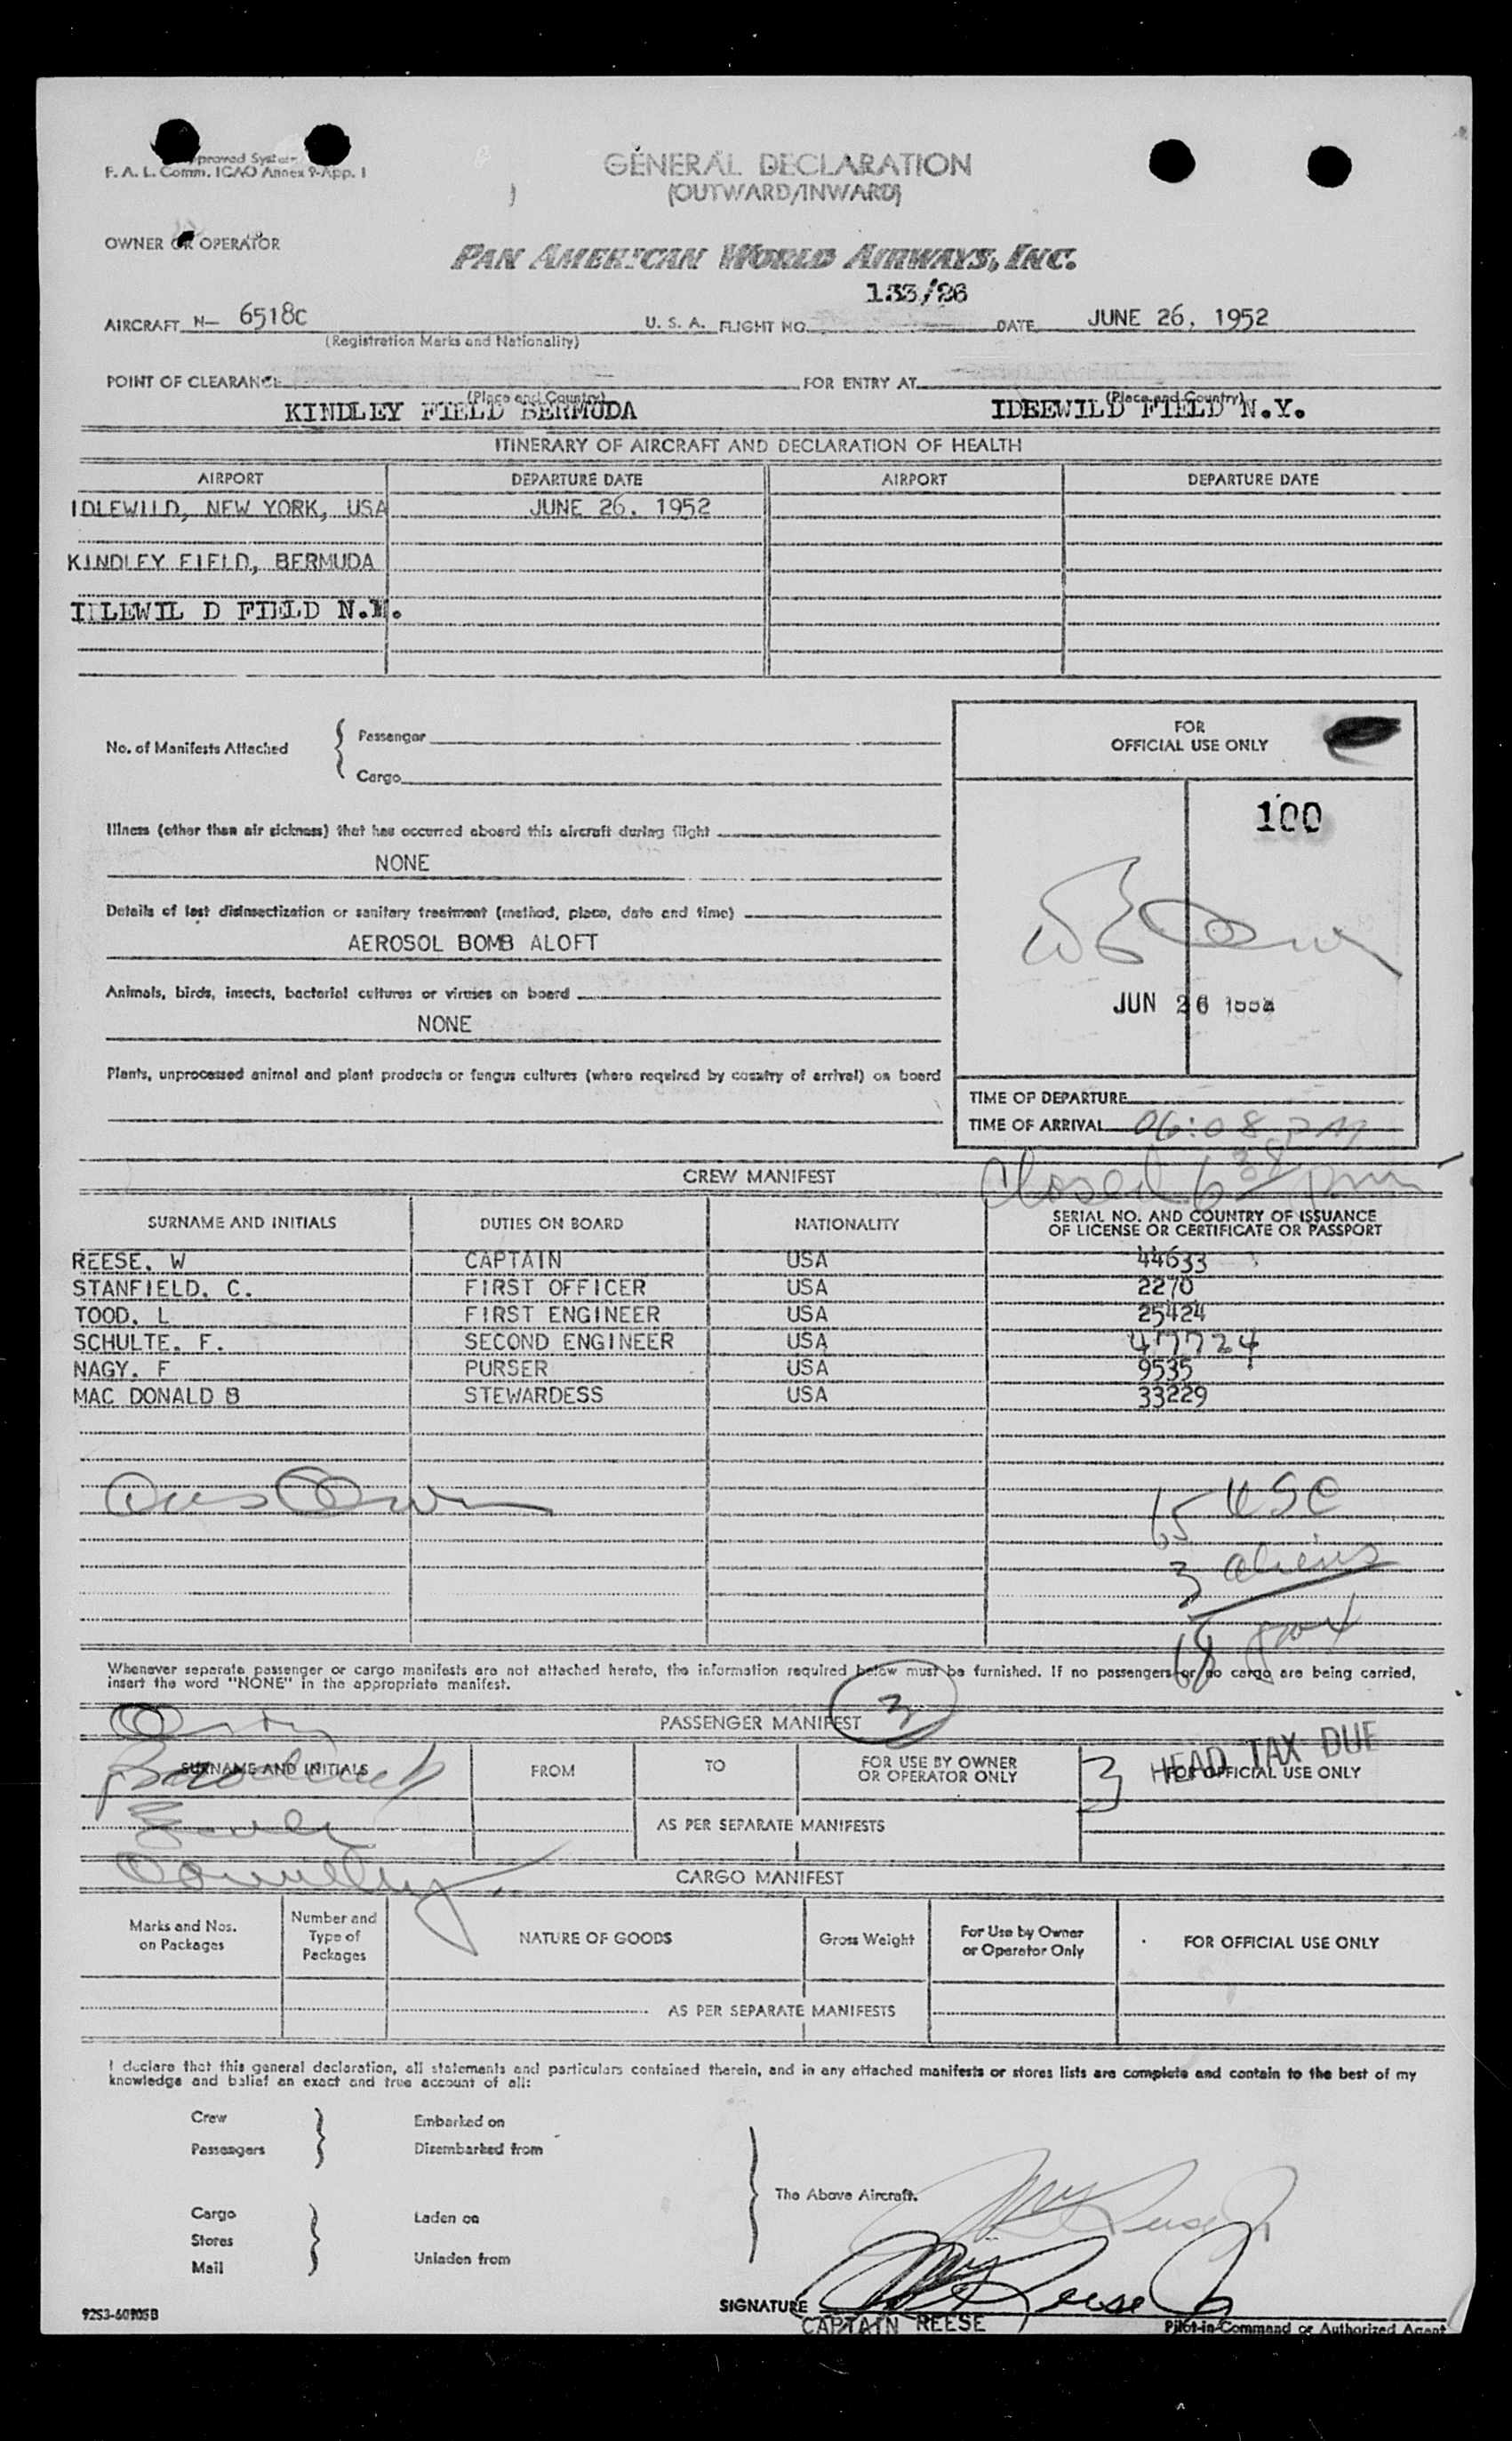 Approved System
F. A. L. Comm. ICAO Annex 9-App. 1
GENERAL DECLARATION
(OUTWARD/INWARD)
OWNER OR OPERATOR
PAN AMERICAN WORLD AIRWAYS, INC.
133/26
AIRCRAFT N- 6518C U. S. A. FLIGHT NO. DATE JUNE 26, 1952
(Registration Marks and Nationality)
POINT OF CLEARANCE FOR ENTRY AT
(Place and Country) (Place and Country)
KINDLEY FIELD BERMUDA IDEEWILD FIELD N.Y.
ITINERARY OF AIRCRAFT AND DECLARATION OF HEALTH
AIRPORT DEPARTURE DATE AIRPORT DEPARTURE DATE
IDLEWILD, NEW YORK, USA JUNE 26, 1952
KINDLEY FIELD, BERMUDA
IDLEWIL D FIELD N.Y.
FOR
OFFICIAL USE ONLY
No. of Manifests Attached
Passenger
Cargo
100
Illness (other than air sickness) that has occurred aboard this aircraft during flight
NONE
Details of last disinsectization or sanitary treatment (method, place, date and time)
AEROSOL BOMB ALOFT
Animals, birds, insects, bacterial cultures or viruses on board
JUN 26 1952
NONE
Plants, unprocessed animal and plant products or fungus cultures (where required by country of arrival) on board
TIME OF DEPARTURE
TIME OF ARRIVAL 06:08 PM
Closed 6 38 pm
CREW MANIFEST
SURNAME AND INITIALS DUTIES ON BOARD NATIONALITY SERIAL NO. AND COUNTRY OF ISSUANCE
OF LICENSE OR CERTIFICATE OR PASSPORT
REESE, W CAPTAIN USA 44633
STANFIELD, C. FIRST OFFICER USA 2270
TOOD, L FIRST ENGINEER USA 25424
SCHULTE, F. SECOND ENGINEER USA 47724
NAGY, F PURSER USA 9535
MAC DONALD B STEWARDESS USA 33229
65 USC
3 aliens
68
Whenever separate passenger or cargo manifests are not attached hereto, the information required below must be furnished. If no passengers or no cargo are being carried,
insert the word "NONE" in the appropriate manifest.
3
PASSENGER MANIFEST
3 HEAD TAX DUE
SURNAME AND INITIALS FROM TO FOR USE BY OWNER
OR OPERATOR ONLY FOR OFFICIAL USE ONLY
AS PER SEPARATE MANIFESTS
CARGO MANIFEST
Marks and Nos.
on Packages Number and
Type of
Packages NATURE OF GOODS Gross Weight For Use by Owner
or Operator Only FOR OFFICIAL USE ONLY
AS PER SEPARATE MANIFESTS
I declare that this general declaration, all statements and particulars contained therein, and in any attached manifests or stores lists are complete and contain to the best of my
knowledge and belief an exact and true account of all:
Crew Embarked on
Passengers Disembarked from
The Above Aircraft.
Cargo Laden on
Stores
Mail Unladen from
SIGNATURE
CAPTAIN REESE Pilot-in-Command or Authorized Agent
92S3-60905B